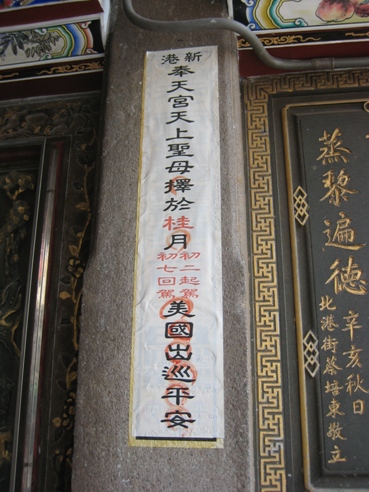 新港
奉天宮天上聖母擇於桂月
初二起駕
初七回駕
美國出巡平安
蒸黎遍德
辛亥秋日
北港街蔡培東敬立